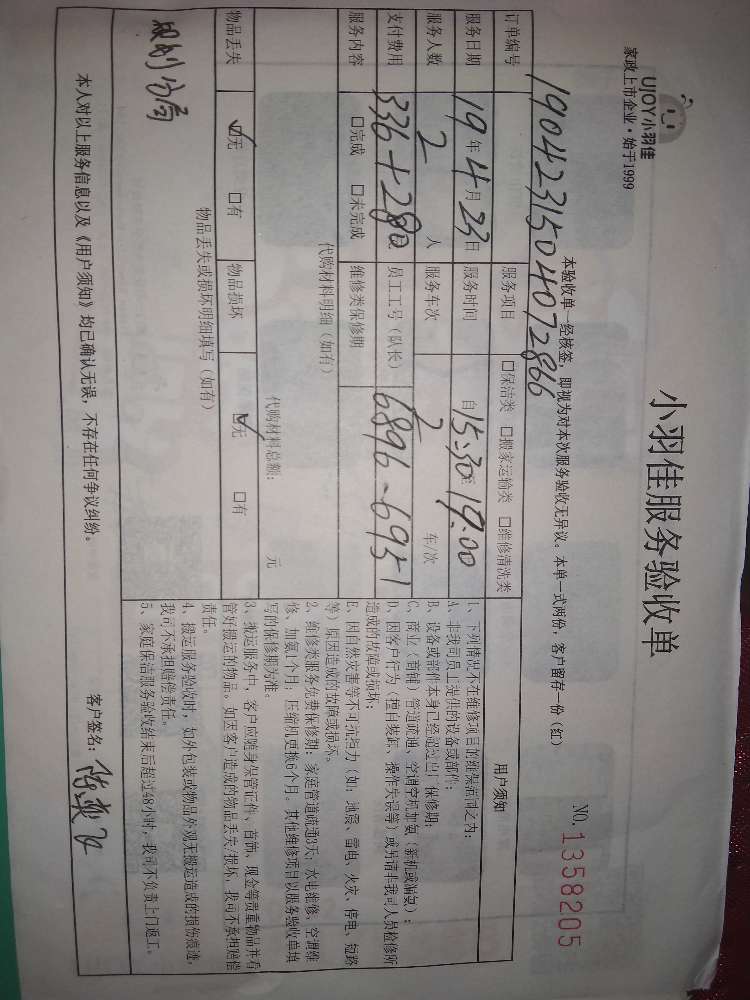 UJOY小羽佳
家政上市企业·始于1999
小羽佳服务验收单
NO. 1358205
本验收单一经核签，即视为对本次服务验收无异议。本单一式两份，客户留存一份（红）
订单编号 190423150407286
服务项目 □保洁类 □搬家运输类 □维修清洗类
服务日期 19年4月23日 服务时间 自15:30至19:00
服务人数 2人 服务车次 2车/次
支付费用 336+280 员工工号（队长） 6896-6951
服务内容 □完成 □未完成 维修类保修期
代购材料明细（如有）
代购材料总额： 元
物品丢失 ☑无 □有 物品损坏 ☑无 □有
物品丢失或损坏明细填写（如有）
用户须知
1、下列情况不在维修项目的维保范围之内：
A、非我司员工提供的设备或部件；
B、设备或部件本身已经超过出厂保修期；
C、商业（商铺）管道疏通、空调空机加氨（新机或漏氨）；
D、因客户行为（擅自装卸、操作失误等）或另请非我司人员检修所
造成的故障或损坏；
E、因自然灾害等不可抗拒力（如：地震、雷电、火灾、停电、短路
等）原因造成的故障或损坏。
2、维修类服务免费保修期：家庭管道疏通3天；水电维修、空调维
修、加氨1个月；压缩机更换6个月。其他维修项目以服务验收单填
写的保修期为准。
3、搬运服务中，客户应随身保管证件、首饰、现金等贵重物品并看
管好搬运的物品。如因客户造成的物品丢失/损坏，我司不承担赔偿
责任。
4、搬运服务验收时，如外包装或物品外观无搬运造成的损伤痕迹，
我司不承担赔偿责任。
5、家庭保洁服务验收结束后超过48小时，我司不负责上门返工。
本人对以上服务信息以及《用户须知》均已确认无误，不存在任何争议纠纷。
客户签名：